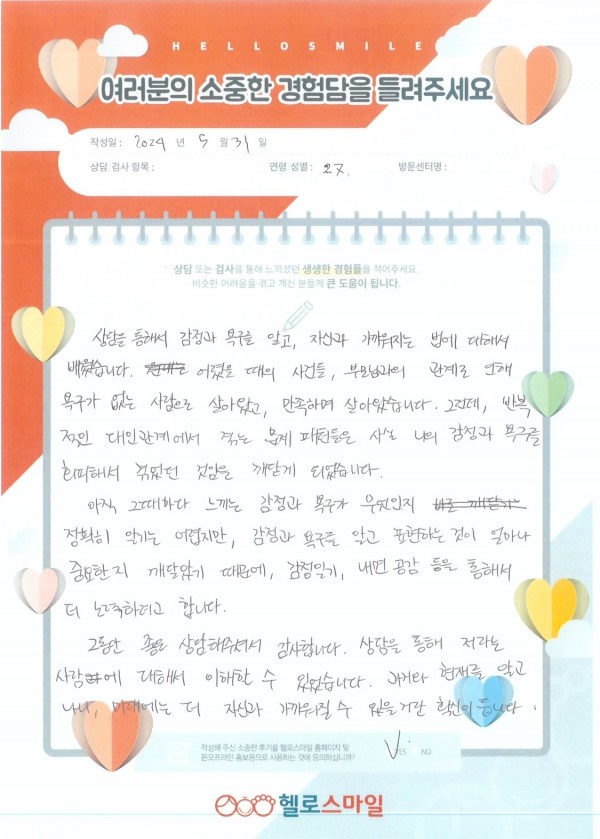 HELLOSMILE
여러분의 소중한 경험담을 들려주세요
작성일 : 2024 년 5 월 31 일
상담 검사 항목 : 연령 성별 : 27. 방문센터명 :
상담 또는 검사를 통해 느끼셨던 생생한 경험들을 적어주세요.
비슷한 어려움을 겪고 계신 분들께 큰 도움이 됩니다.
상담을 통해서 감정과 욕구를 알고, 자신과 가까워지는 법에 대해서
배웠습니다. 어렸을 때의 사건들, 부모님과의 관계로 인해
욕구가 없는 사람으로 살아왔고, 만족하며 살아왔습니다. 그런데, 반복
적인 대인관계에서 겪는 문제 패턴들은 사실 나의 감정과 욕구를
회피해서 겪었던 것임을 깨닫게 되었습니다.
아직 그때마다 느끼는 감정과 욕구가 무엇인지 바로 깨닫기
정확히 알기는 어렵지만, 감정과 욕구를 알고 표현하는 것이 얼마나
중요한지 깨달았기 때문에, 감정일기, 내면 공감 등을 통해서
더 노력하려고 합니다.
그동안 좋은 상담해주셔서 감사합니다. 상담을 통해 저라는
사람에 대해서 이해할 수 있었습니다. 과거와 현재를 알고
나니, 미래에는 더 자신과 가까워질 수 있을거란 확신이 듭니다.
작성해 주신 소중한 후기를 헬로스마일 홈페이지 및
온오프라인 홍보용으로 사용하는 것에 동의하십니까? YES NO
헬로스마일